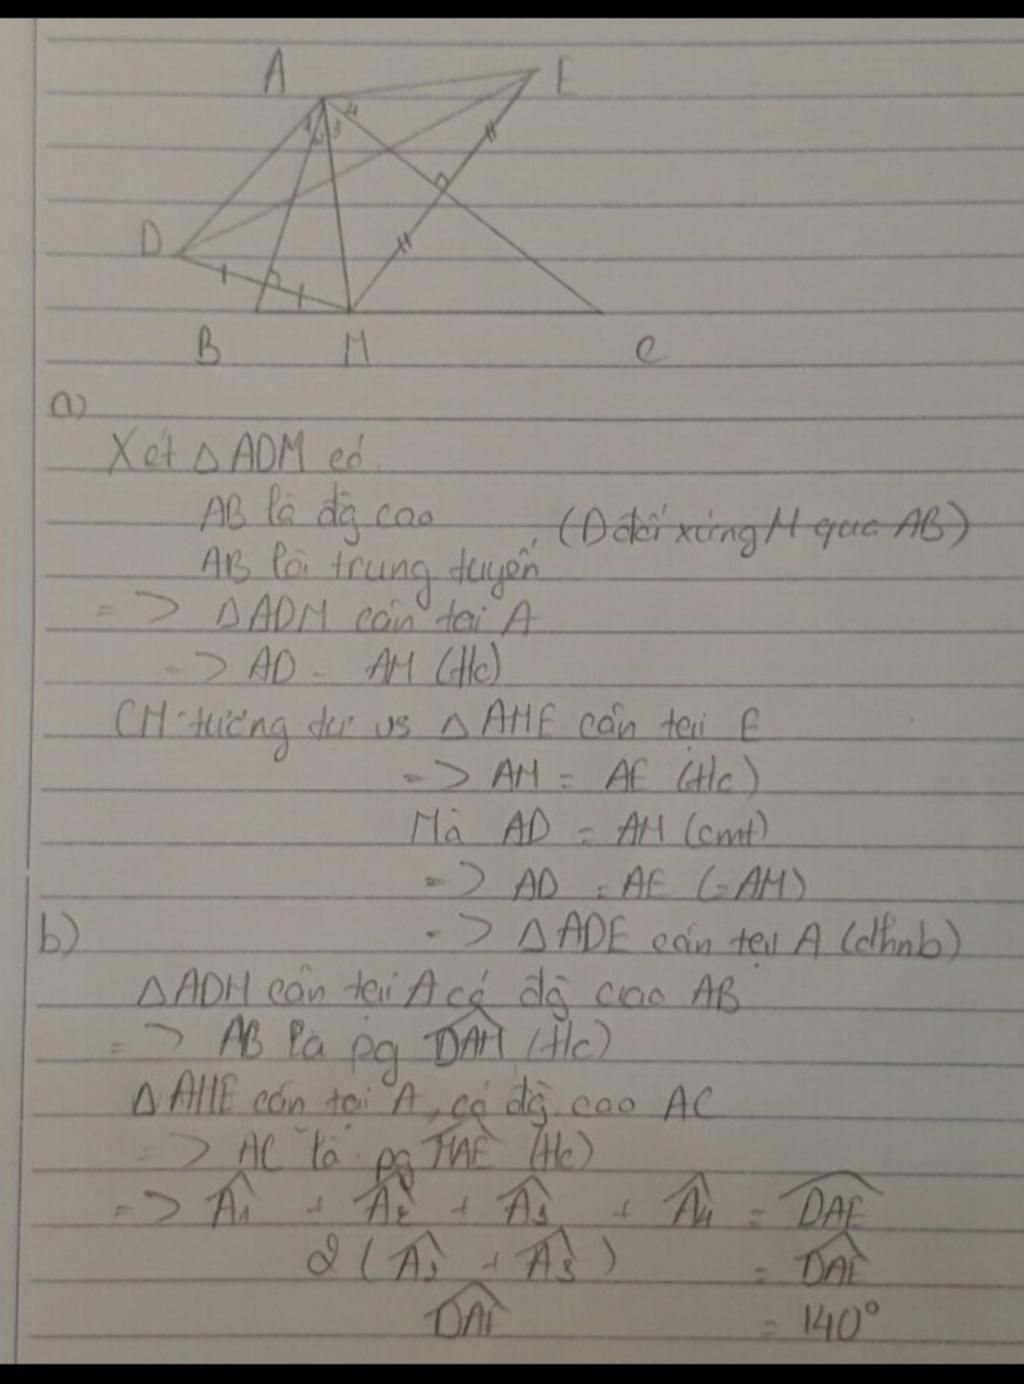 A
E
1 2 3 4
D
B M C
a)
Xét △ADM có.
AB là đg cao
(D đối xứng M qua AB)
AB là trung tuyến
=> △ADM cân tại A
=> AD = AM (t/c)
CM tương tự vs △AME cân tại E
=> AM = AE (t/c)
Mà AD = AM (cmt)
=> AD = AE (=AM)
b) => △ADE cân tại A (dhnb)
△ADM cân tại A có đg cao AB
=> AB là pg D̂AM (t/c)
△AME cân tại A, có đg cao AC
=> AC là pg M̂AE (t/c)
=> Â1 + Â2 + Â3 + Â4 = D̂AE
2 (Â2 + Â3) = D̂AE
D̂AE = 140°